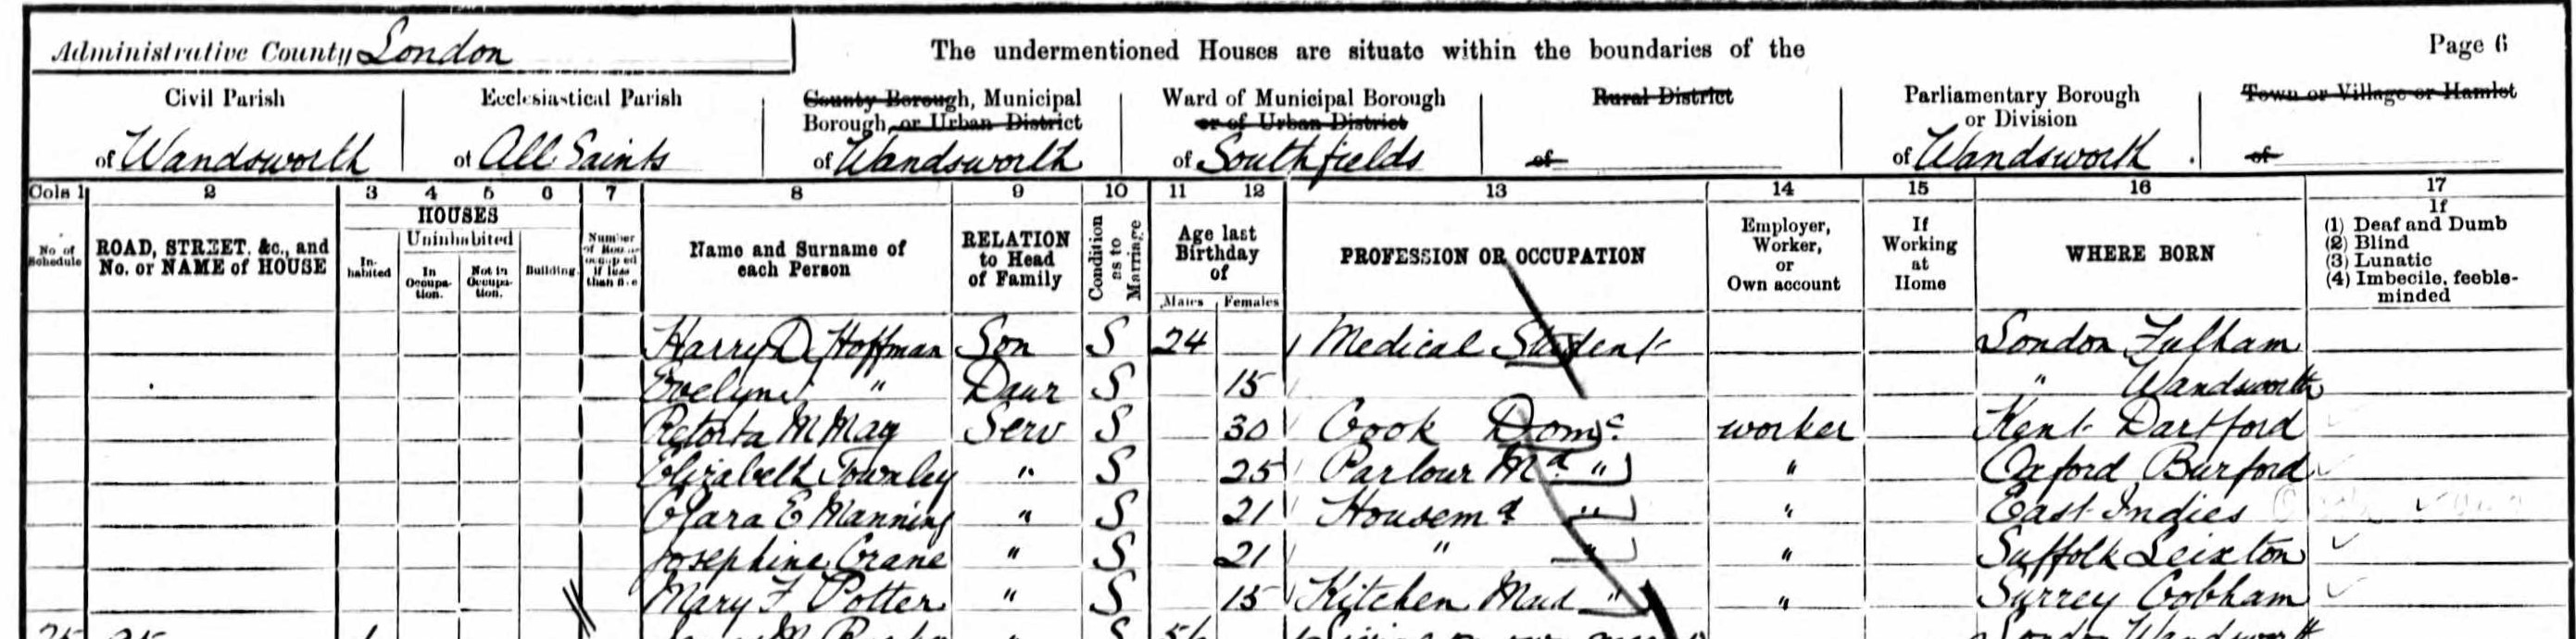 Administrative County London
The undermentioned Houses are situate within the boundaries of the
Page 6
Civil Parish of Wandsworth
Ecclesiastical Parish of All Saints
County Borough, Municipal Borough or Urban District of Wandsworth
Ward of Municipal Borough or of Urban District of Southfields
Rural District of
Parliamentary Borough or Division of Wandsworth
Town or Village or Hamlet of
Cols 1 2 3 4 5 6 7 8 9 10 11 12 13 14 15 16 17
No. of Schedule
ROAD, STREET, &c., and No. or NAME of HOUSE
HOUSES
Inhabited
Uninhabited
In Occupation.
Not in Occupation.
Building.
Number of Rooms occupied if less than five
Name and Surname of each Person
RELATION to Head of Family
Condition as to Marriage
Age last Birthday of
Males Females
PROFESSION OR OCCUPATION
Employer, Worker, or Own account
If Working at Home
WHERE BORN
If
(1) Deaf and Dumb
(2) Blind
(3) Lunatic
(4) Imbecile, feeble-minded
Harry D Hoffman Son S 24 Medical Student London Fulham
Evelyn " Daur S 15 " Wandsworth
M May Serv S 30 Cook Domc. worker Kent Dartford
Elizabeth Townley " S 25 Parlour Md " " Oxford Burford
Clara E Manning " S 21 Housemd " " East Indies
Josephine Crane " S 21 " " " Suffolk Leixton
Mary F Potter " S 15 Kitchen Maid " " Surrey Cobham